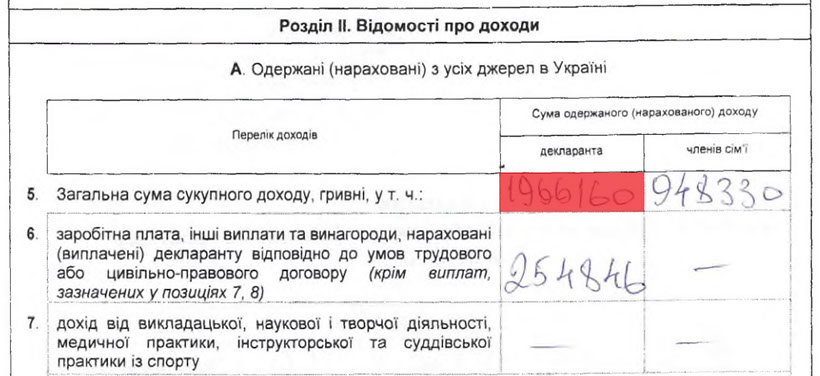 Розділ II. Відомості про доходи
А. Одержані (нараховані) з усіх джерел в Україні
Перелік доходів
Сума одержаного (нарахованого) доходу
декларанта
членів сім'ї
5. Загальна сума сукупного доходу, гривні, у т. ч.:
1966160
948330
6. заробітна плата, інші виплати та винагороди, нараховані
(виплачені) декларанту відповідно до умов трудового
або цивільно-правового договору (крім виплат,
зазначених у позиціях 7, 8)
254846
—
7. дохід від викладацької, наукової і творчої діяльності,
медичної практики, інструкторської та суддівської
практики із спорту
—
—